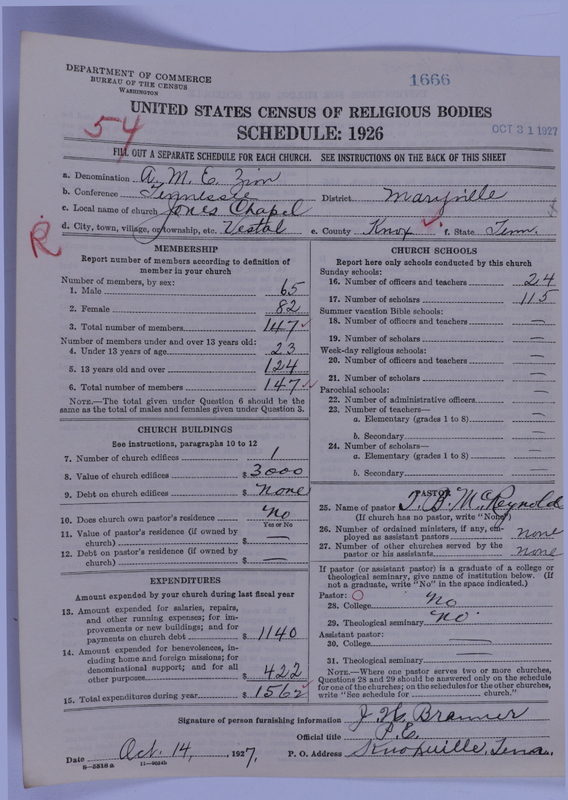 DEPARTMENT OF COMMERCE
BUREAU OF THE CENSUS
WASHINGTON
1666
UNITED STATES CENSUS OF RELIGIOUS BODIES
SCHEDULE: 1926
OCT 31 1927
54
FILL OUT A SEPARATE SCHEDULE FOR EACH CHURCH. SEE INSTRUCTIONS ON THE BACK OF THIS SHEET
a. Denomination A. M. E. Zion
b. Conference Tennessee District Maryville
c. Local name of church Jones Chapel
d. City, town, village, or township, etc. Vestal e. County Knox f. State Tenn.
R
MEMBERSHIP
Report number of members according to definition of
member in your church
Number of members, by sex:
1. Male 65
2. Female 82
3. Total number of members 147
Number of members under and over 13 years old:
4. Under 13 years of age 23
5. 13 years old and over 124
6. Total number of members 147
NOTE.—The total given under Question 6 should be
same as the total of males and females given under Question 3.
CHURCH BUILDINGS
See instructions, paragraphs 10 to 12
7. Number of church edifices 1
8. Value of church edifices $ 3000
9. Debt on church edifices $ none
10. Does church own pastor's residence no
Yes or No
11. Value of pastor's residence (if owned by
church) $ —
12. Debt on pastor's residence (if owned by
church) $ —
EXPENDITURES
Amount expended by your church during last fiscal year
13. Amount expended for salaries, repairs,
and other running expenses; for im-
provements or new buildings; and for
payments on church debt $ 1140
14. Amount expended for benevolences, in-
cluding home and foreign missions; for
denominational support; and for all
other purposes $ 422
15. Total expenditures during year $ 1562
CHURCH SCHOOLS
Report here only schools conducted by this church
Sunday schools:
16. Number of officers and teachers 24
17. Number of scholars 115
Summer vacation Bible schools:
18. Number of officers and teachers —
19. Number of scholars —
Week-day religious schools:
20. Number of officers and teachers —
21. Number of scholars —
Parochial schools:
22. Number of administrative officers —
23. Number of teachers—
a. Elementary (grades 1 to 8) —
b. Secondary —
24. Number of scholars—
a. Elementary (grades 1 to 8) —
b. Secondary —
PASTOR
25. Name of pastor T. B. McReynolds
(If church has no pastor, write "None")
26. Number of ordained ministers, if any, em-
ployed as assistant pastors none
27. Number of other churches served by the
pastor or his assistants none
If pastor (or assistant pastor) is a graduate of a college or
theological seminary, give name of institution below. (If
not a graduate, write "No" in the space indicated.)
Pastor:
28. College No
29. Theological seminary No.
Assistant pastor:
30. College —
31. Theological seminary —
NOTE.—Where one pastor serves two or more churches,
Questions 28 and 29 should be answered only on the schedule
for one of the churches; on the schedules for the other churches,
write "See schedule for church."
Signature of person furnishing information J. W. Branner
Official title P.E.
Date Oct. 14, 1927. P. O. Address Knoxville, Tenn.
8-5516a 11-9024b